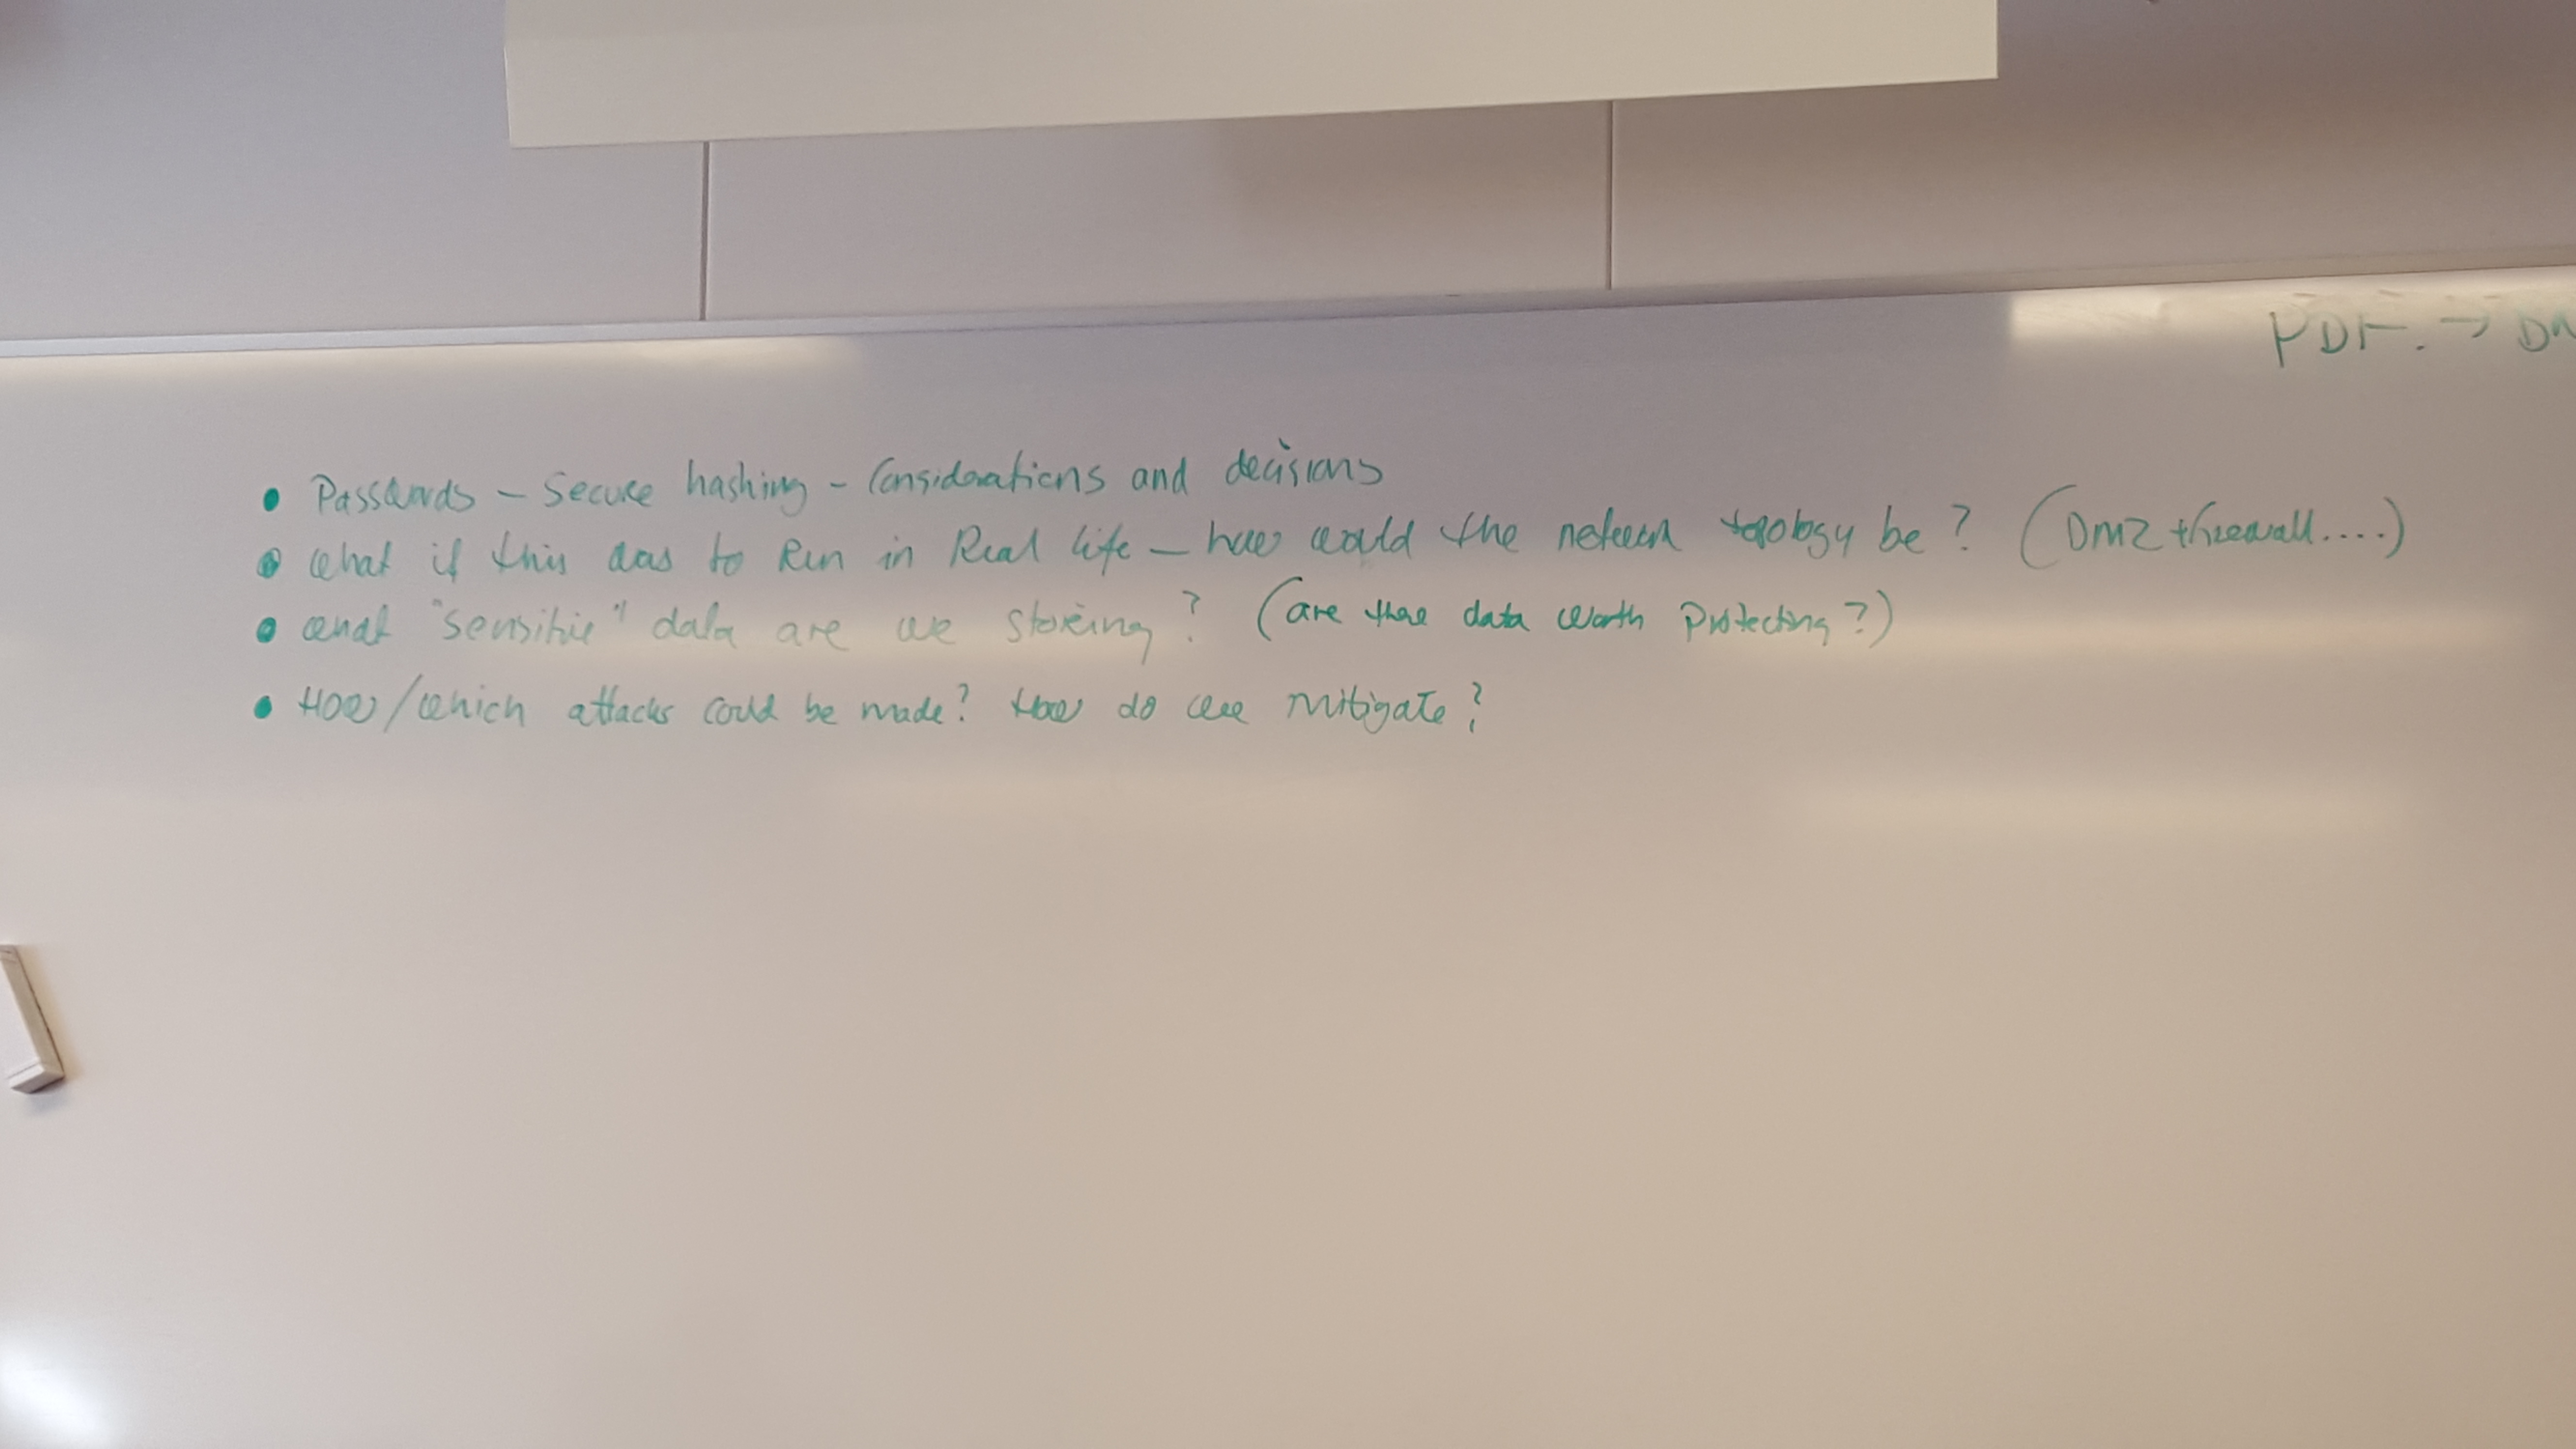 PDF. →
• Passwords - Secure hashing - Considerations and decisions
• what if this was to Run in Real life - how would the network topology be? (DMZ + firewall....)
• what "sensitive" data are we storing? (are there data worth protecting?)
• How/which attacks could be made? How do we mitigate?